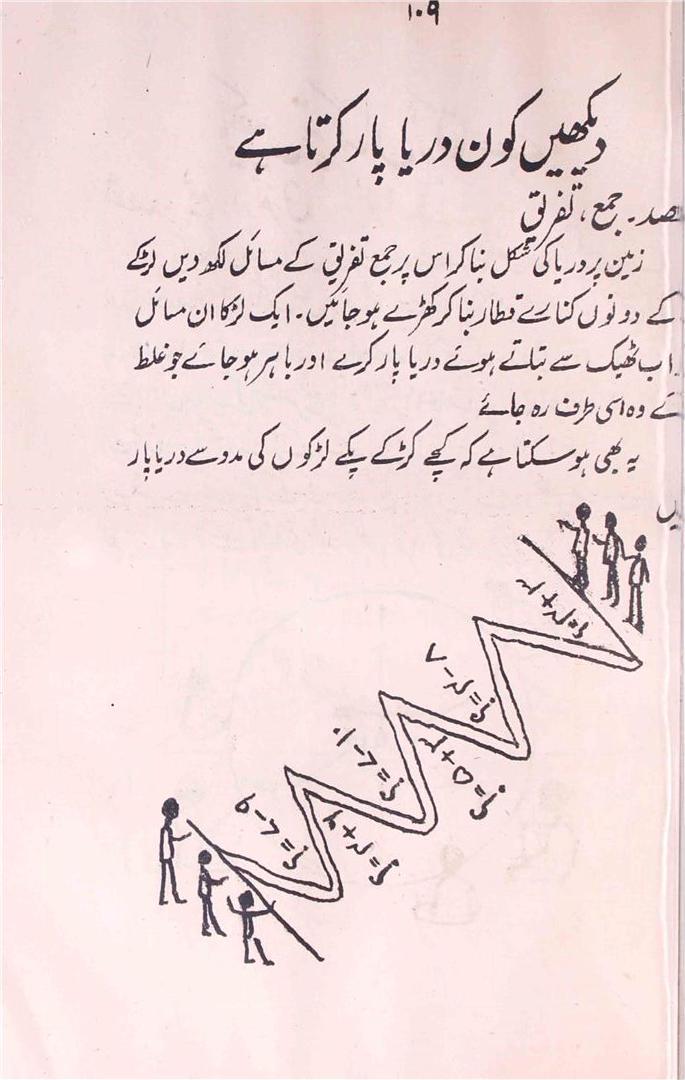 ۱۰۹
دیکھیں کون دریا پار کرتا ہے
صد ۔ جمع ، تفریق
زمین پر دریا کی شکل بنا کر اس پر جمع تفریق کے مسائل لکھ دیں لڑکے
کے دونوں کنارے قطار بنا کر کھڑے ہو جائیں ۔ ایک لڑکا ان مسائل
اب ٹھیک سے بتاتے ہوئے دریا پار کرے اور باہر ہو جائے جو غلط
ئے وہ اسی طرف رہ جائے
یہ بھی ہو سکتا ہے کہ کچے کڑکے پکے لڑکوں کی مدد سے دریا پار
یں